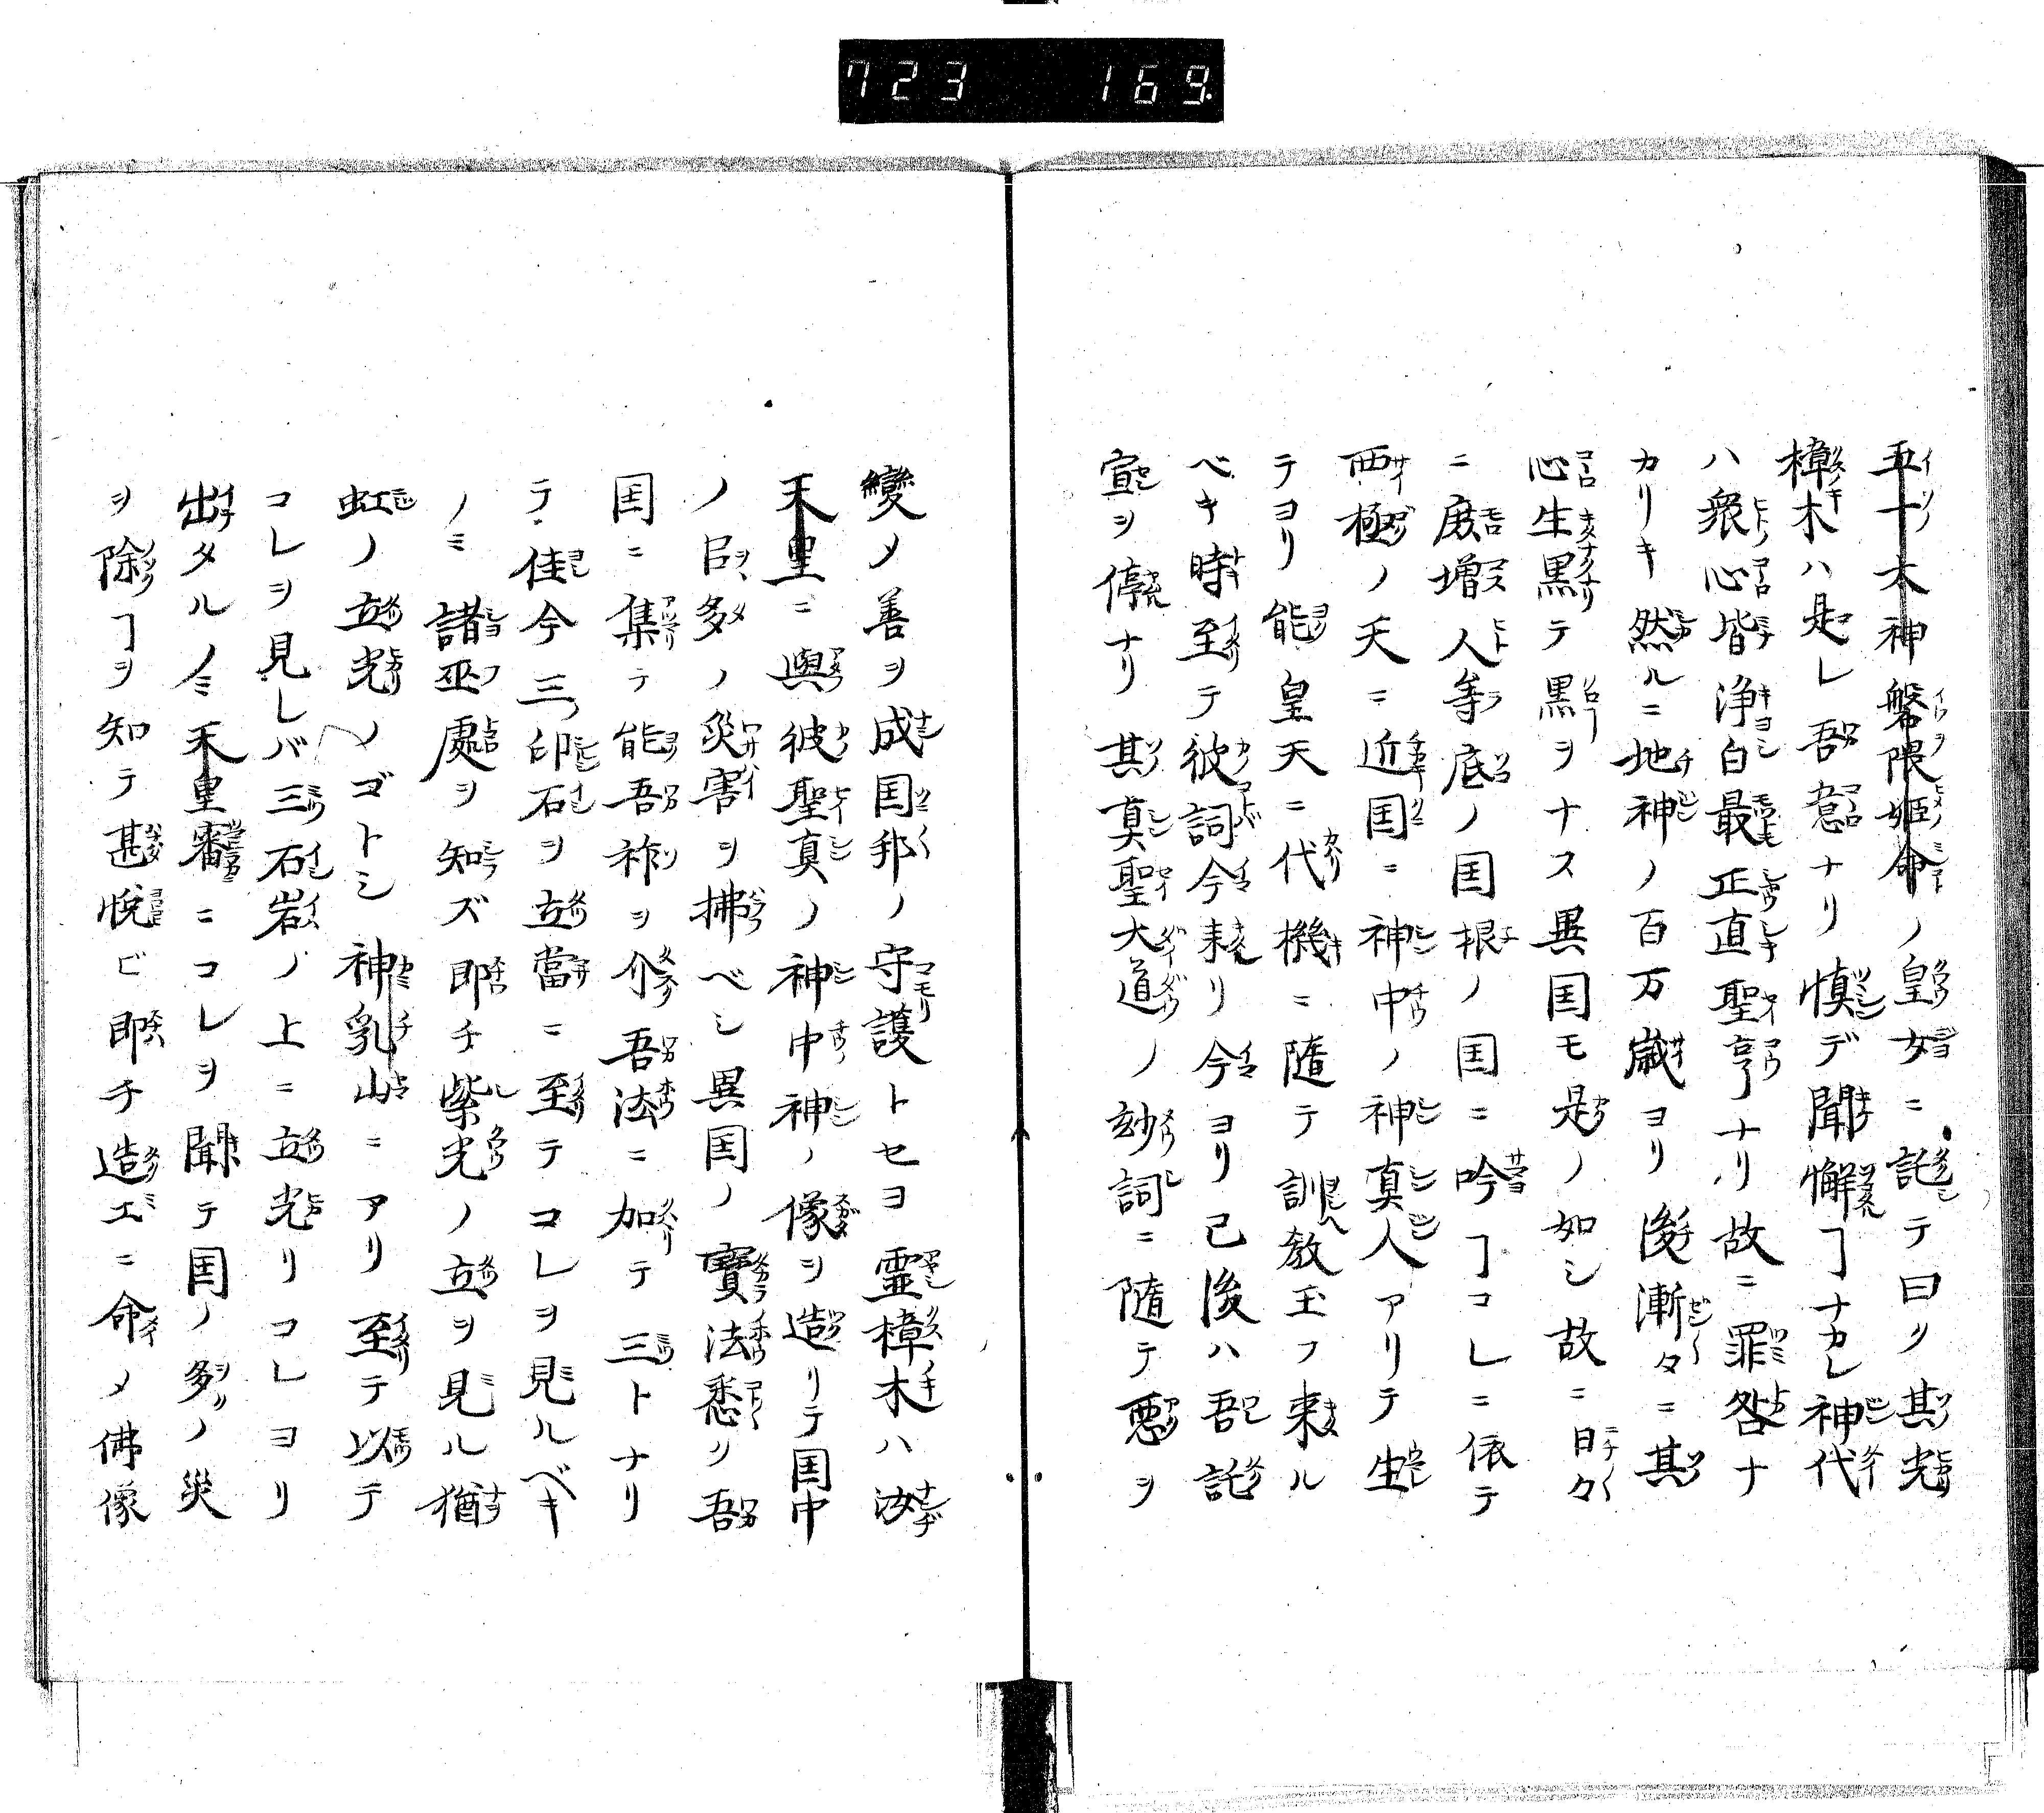 723 169
五十大神磐隈姫命ノ皇女ニ託テ曰ク其光
樟木ハ是レ吾意ナリ慎デ聞懈ヿナカレ神代
ハ衆心皆浄白最正直聖亨ナリ故ニ罪咎ナ
カリキ然ルニ地神ノ百万歳ヨリ後漸々ニ其
心生黒テ黒ヲナス異国モ是ノ如シ故ニ日々
ニ庶増人等底ノ国根ノ国ニ吟ヿコレニ依テ
西極ノ天ニ近国ニ神中ノ神真人アリテ生
テヨリ能皇天ニ代機ニ随テ訓教玉フ来ル
ベキ時至テ彼詞今来リ今ヨリ已後ハ吾託
宣ヲ停ナリ其真聖大道ノ玅詞ニ随テ悪ヲ
變メ善ヲ成国邦ノ守護トセヨ霊樟木ハ汝
天皇ニ與彼聖真ノ神中神ノ像ヲ造リテ国中
ノ巨多ノ災害ヲ拂ベシ異国ノ寳法悉ク吾
国ニ集テ能吾祚ヲ介吾法ニ加テ三トナリ
テ佳今三印石ヲ立當ニ至テコレヲ見ルベキ
ノミ諸巫處ヲ知ズ即チ紫光ノ立ヲ見ル猶
虹ノ立光ノゴトシ神乳山ニアリ至テ以テ
コレヲ見レバ三石岩ノ上ニ立光リコレヨリ
出タルノミ天皇審ニコレヲ聞テ国ノ多ノ災
ヲ除ヿヲ知テ甚悦ビ即チ造エニ命メ佛像